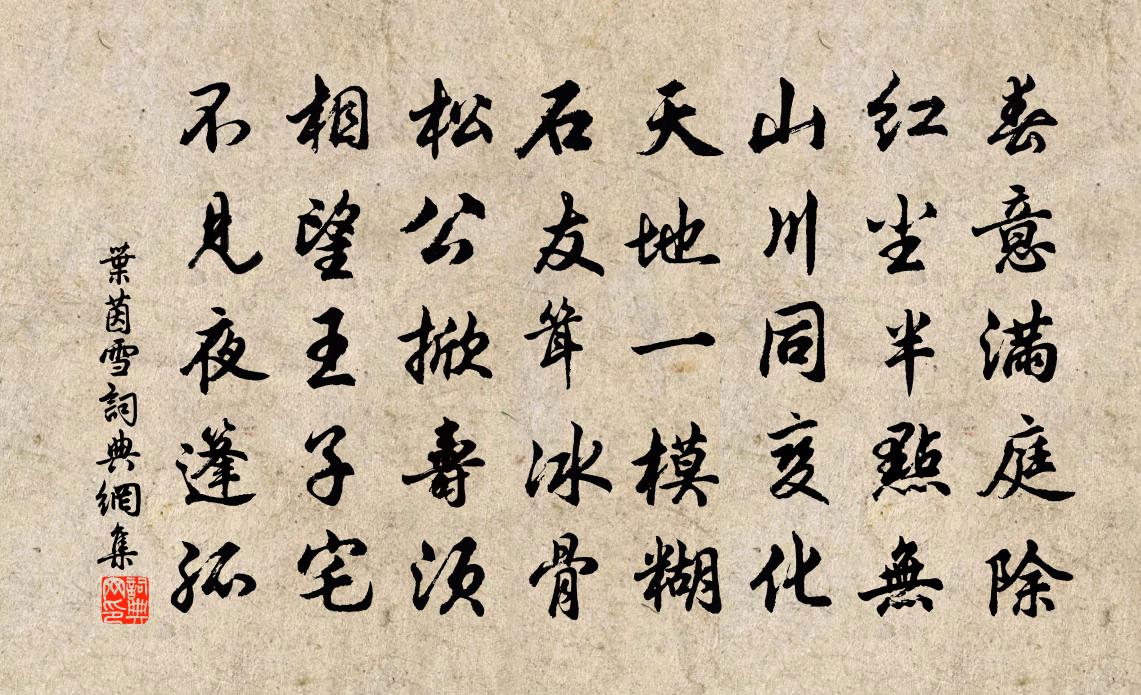 春意满庭除
红尘半點無
山川同变化
天地一模糊
石友耸冰骨
松公掀壽须
相望王子宅
不见夜篷孤
葉茵雪詞典網集
詞典网印